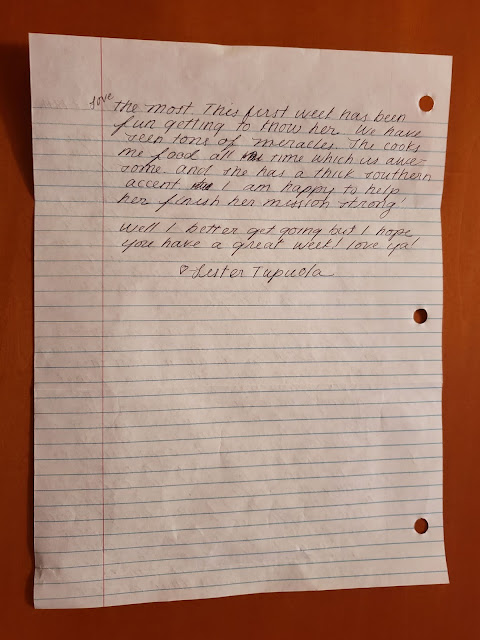 love
the most. This first week has been
fun getting to know her. We have
seen tons of meracles. She cooks
me food all the time which is awe-
some. and she has a thick southern
accent I am happy to help
her finish her mission strong!
Well I better get going but I hope
you have a great week! love ya!
♡ Sister Tupuola